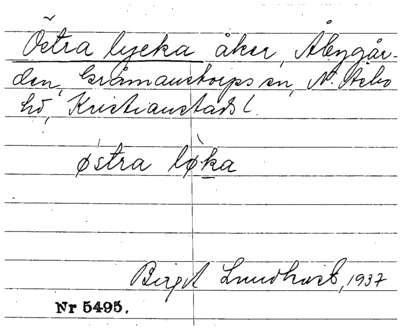 Östra lycka åker, Åbygår-
den, Gråmanstorps sn, N. Åsbo
hd, Kristianstads l.
østra løka
Birgit Lundkvist, 1937
Nr 5495.